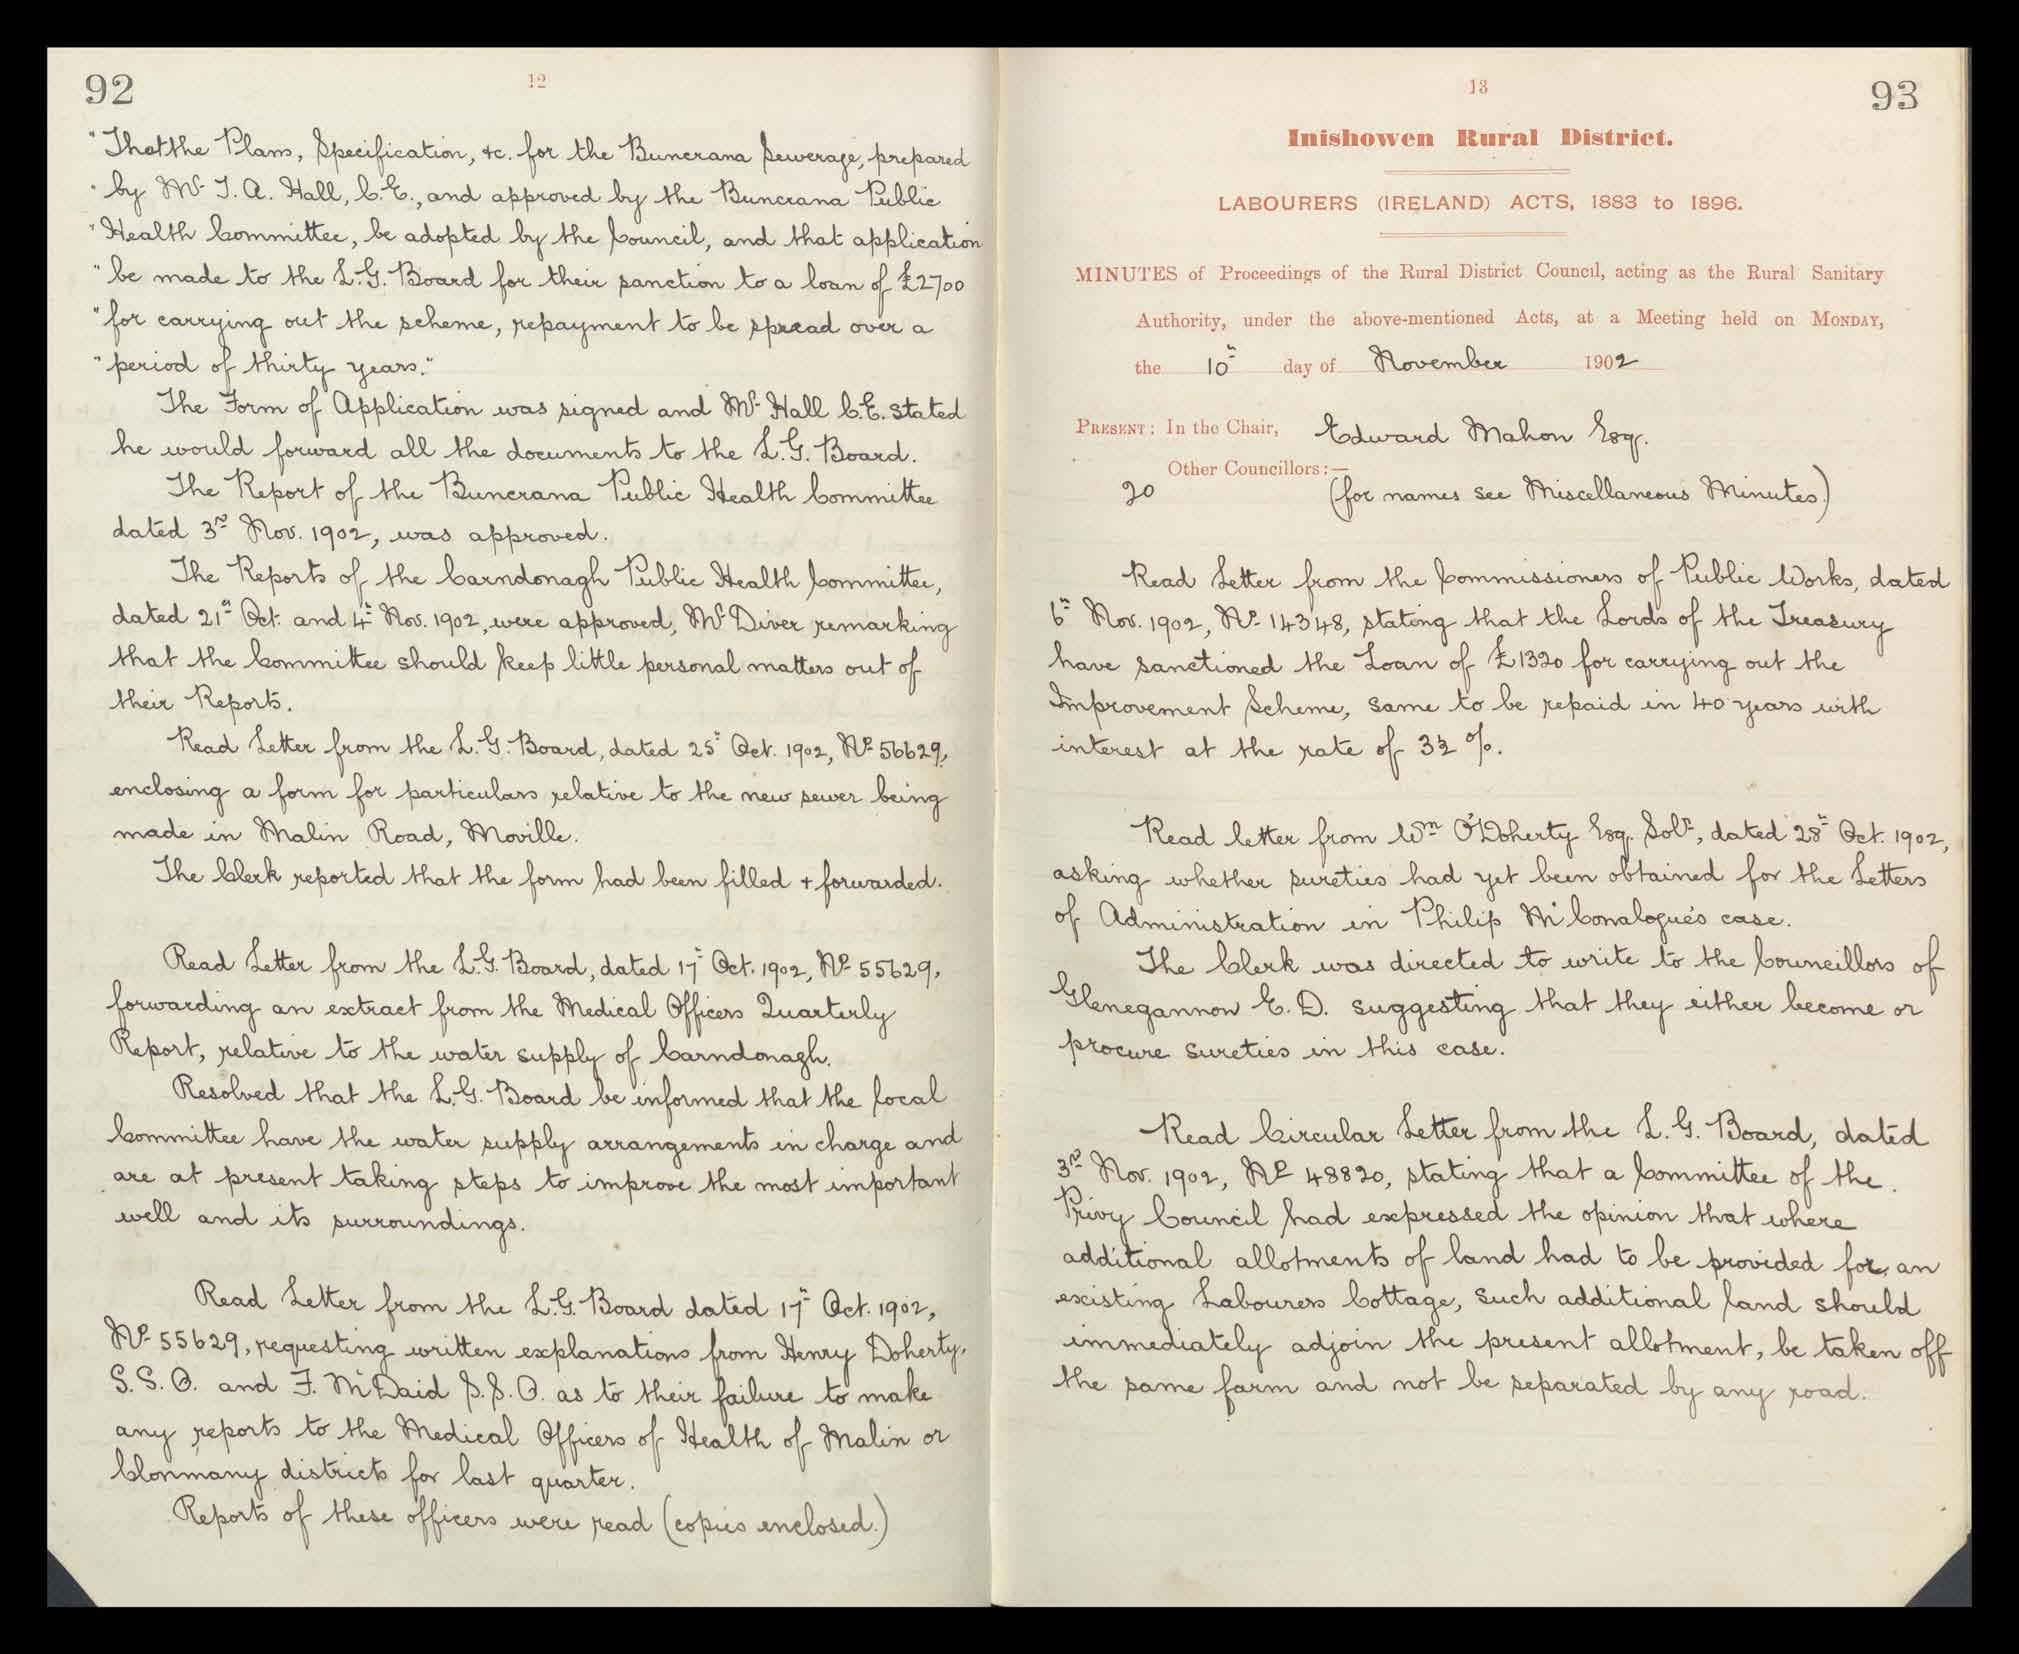 92
12
"That the Plans, Specification, &c. for the Buncrana Sewerage, prepared
" by Mr. J. A. Hall, C.E., and approved by the Buncrana Public
" Health Committee, be adopted by the Council, and that application
" be made to the L.G. Board for their sanction to a loan of £2700
" for carrying out the scheme, repayment to be spread over a
" period of thirty years."
The Form of Application was signed and Mr. Hall C.E. stated
he would forward all the documents to the L.G. Board.
The Report of the Buncrana Public Health Committee
dated 3rd Nov. 1902, was approved.
The Reports of the Carndonagh Public Health Committee,
dated 21st Oct. and 4th Nov. 1902, were approved, Mr. Diver remarking
that the Committee should keep little personal matters out of
their Reports.
Read Letter from the L.G. Board, dated 25th Oct. 1902, No. 56629,
enclosing a form for particulars relative to the new sewer being
made in Malin Road, Moville.
The Clerk reported that the form had been filled + forwarded.
Read Letter from the L.G. Board, dated 17th Oct. 1902, No. 55629,
forwarding an extract from the Medical Officers Quarterly
Report, relative to the water supply of Carndonagh.
Resolved that the L.G. Board be informed that the local
Committee have the water supply arrangements in charge and
are at present taking steps to improve the most important
well and its surroundings.
Read Letter from the L.G. Board dated 17th Oct. 1902,
No. 55629, requesting written explanations from Henry Doherty,
S.S.O. and F. McDaid S.S.O. as to their failure to make
any reports to the Medical Officers of Health of Malin or
Clonmany districts for last quarter.
Reports of these officers were read (copies enclosed.)
13
93
Inishowen Rural District.
LABOURERS (IRELAND) ACTS, 1883 to 1896.
MINUTES of Proceedings of the Rural District Council, acting as the Rural Sanitary
Authority, under the above-mentioned Acts, at a Meeting held on MONDAY,
the 10th day of November 1902
PRESENT: In the Chair, Edward Mahon Esq.
Other Councillors:—
20 (for names see Miscellaneous Minutes.)
Read Letter from the Commissioners of Public Works, dated
6th Nov. 1902, No. 14348, stating that the Lords of the Treasury
have sanctioned the Loan of £1320 for carrying out the
Improvement Scheme, same to be repaid in 40 years with
interest at the rate of 3½ %.
Read letter from Wm. O'Doherty Esq. Solr., dated 28th Oct. 1902,
asking whether sureties had yet been obtained for the Letters
of Administration in Philip McConalogue's case.
The Clerk was directed to write to the Councillors of
Glenegannon E.D. suggesting that they either become or
procure sureties in this case.
Read Circular Letter from the L.G. Board, dated
3rd Nov. 1902, No. 48820, stating that a Committee of the
Privy Council had expressed the opinion that where
additional allotments of land had to be provided for an
existing Labourers Cottage, such additional land should
immediately adjoin the present allotment, be taken off
the same farm and not be separated by any road.